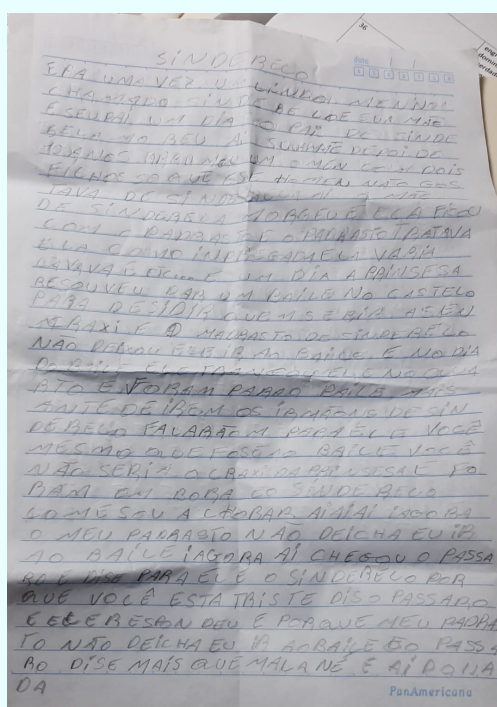 36
SINDERELO
ERA UMA VEZ UM LINDO MENINO
CHAMADO SINDERELO E SUA MAE
E SEU PAI UM DIA O PAI DE SINDE
RELO MO REU AI SUA MÃE DEPOI DE
ANOS UM OMEN COM DOIS
FICHOS SO QUE ESE HOMEN NÃO GOS
TAVA DE AI A MAE
DE SINDERELA MORREU E ELA FICOU
COM O PADRASTO E O PADRASTO TRATAVA
ELA COMO INPREGADA ELA VARIA
LAVAVA E UM DIA A PAINSESA
RESOUVEU DAR UM BAILE NO CASTELO
PARA DESIDIR QUEM SERIA A SEU
E O MADRASTO DE SINDERELO
NÃO DEICHOU ELE IR AO BAILE E NO DIA
DO BAILE ELE TRANCOU ELE NO QUA
RTO E FORAM PARRO BAILE MAIS
ANTE DE IREM OS IRMÃONS DE SIN
DERELO FALARÃOM PARA ELE VOCÊ
MESMO QUE FOSE O BAILE VOCÊ
NÃO SERIA O CRAXI DA PRINSESA E FO
RAM EM BORA EO SINDERELO
COMESOU A CHORAR AIAIAI IAGORA
O MEU PADRASTO NÃO DEICHA EU IR
AO BAILE IAGORA AI CHEGOU O PASSA
RO E DISE PARA ELE O SINDERELO POR
QUE VOCÊ ESTA TRISTE DISO PASSARO
E ELE RESPON DEU É PORQUE MEU PADRA
TO NÃO DEICHA EU IR AO BAILE EO PASSA
RO DISE MAIS QUE MALA NÉ E AI DO NA
DA
PanAmericana